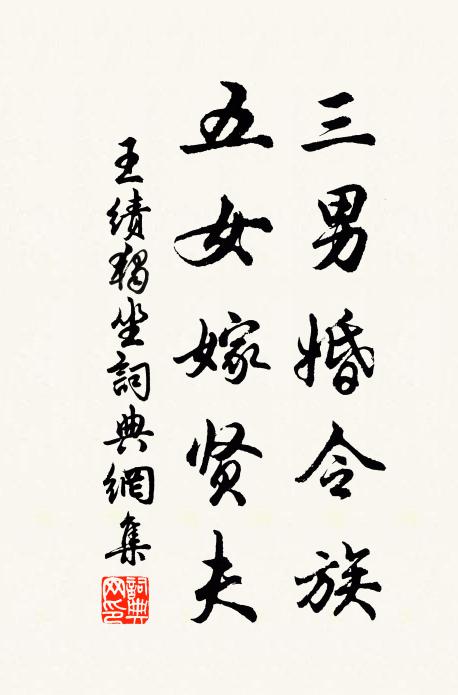 三男婚令族
五女嫁贤夫
王绩獨坐詞典網集
詞典網印